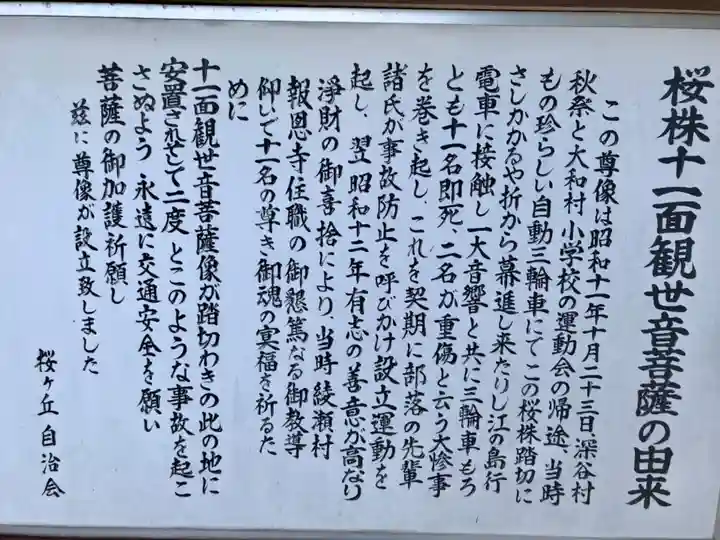 桜株十一面観世音菩薩の由来
この尊像は昭和十一年十月二十三日深谷村
秋祭と大和村小学校の運動会の帰途、当時
もの珍らしい自動三輪車にてこの桜株踏切に
さしかかるや折から驀進し来たりし江の島行
電車に接触し一大音響と共に三輪車もろ
とも十一名即死、二名が重傷と云う大惨事
を巻き起し、これを契期に部落の先輩
諸氏が事故防止を呼びかけ設立運動を
起し、翌昭和十二年有志の善意が高なり
浄財の御喜捨により、当時綾瀬村
報恩寺住職の御懇篤なる御教導
仰いで十一名の尊き御魂の冥福を祈るた
めに
十一面観世音菩薩像が踏切わきの此の地に
安置されせて二度とこのような事故を起こ
さぬよう永遠に交通安全を願い
菩薩の御加護祈願し
茲に尊像が設立致しました
桜ヶ丘自治会